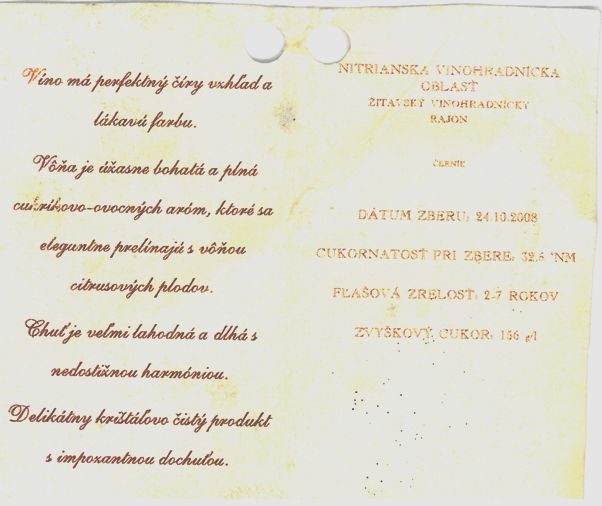 Víno má perfektný číry vzhľad a
lákavú farbu.
Vôňa je úžasne bohatá a plná
cukríkovo-ovocných aróm, ktoré sa
elegantne prelínajú s vôňou
citrusových plodov.
Chuť je veľmi lahodná a dlhá s
nedostižnou harmóniou.
Delikátny krištáľovo čistý produkt
s impozantnou dochuťou.
NITRIANSKA VINOHRADNÍCKA
OBLASŤ
ŽITAVSKÝ VINOHRADNÍCKY
RAJON
ČERNÍK
DÁTUM ZBERU: 24.10.2008
CUKORNATOSŤ PRI ZBERE: 32,5 °NM
FĽAŠOVÁ ZRELOSŤ: 2-7 ROKOV
ZVYŠKOVÝ CUKOR: 156 g/l